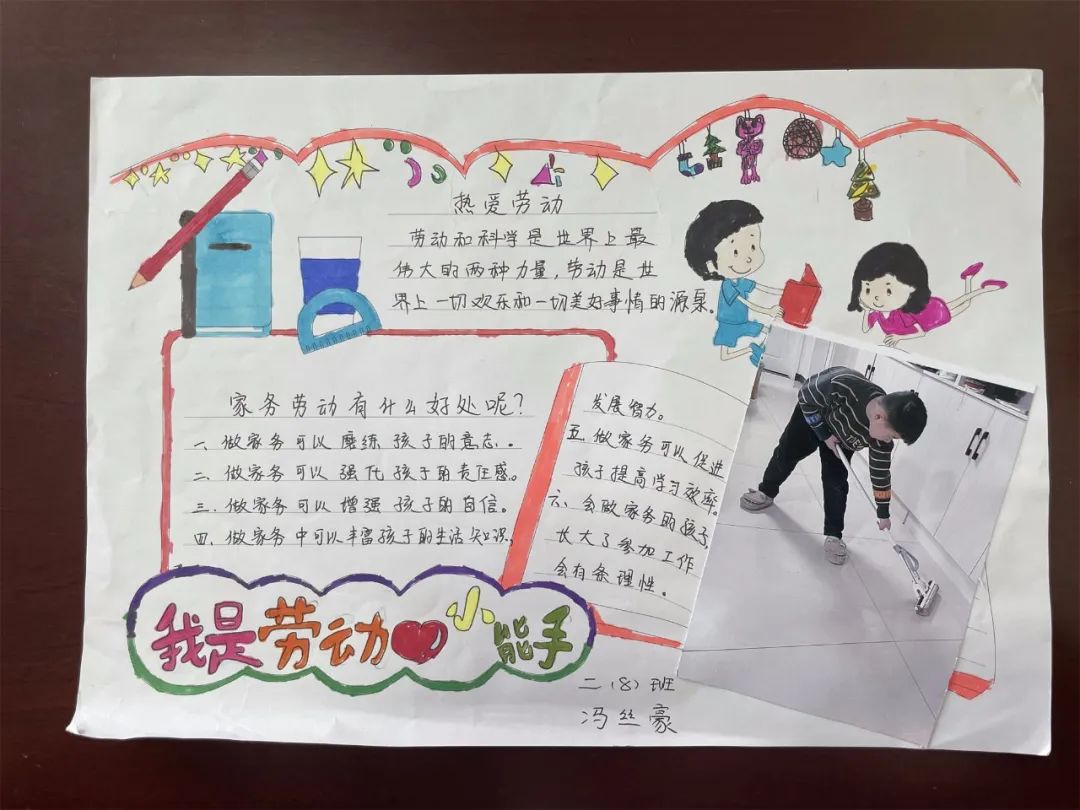 热爱劳动
劳动和科学是世界上最
伟大的两种力量,劳动是世
界上一切欢乐和一切美好事情的源泉。
家务劳动有什么好处呢?
一、做家务可以磨练孩子的意志。
二、做家务可以强化孩子的责任感。
三、做家务可以增强孩子的自信。
四、做家务中可以丰富孩子的生活知识,
发展智力。
五、做家务可以促进
孩子提高学习效率。
六、会做家务的孩子,
长大了参加工作
会有条理性。
我是劳动小能手
二(8)班
冯丝豪